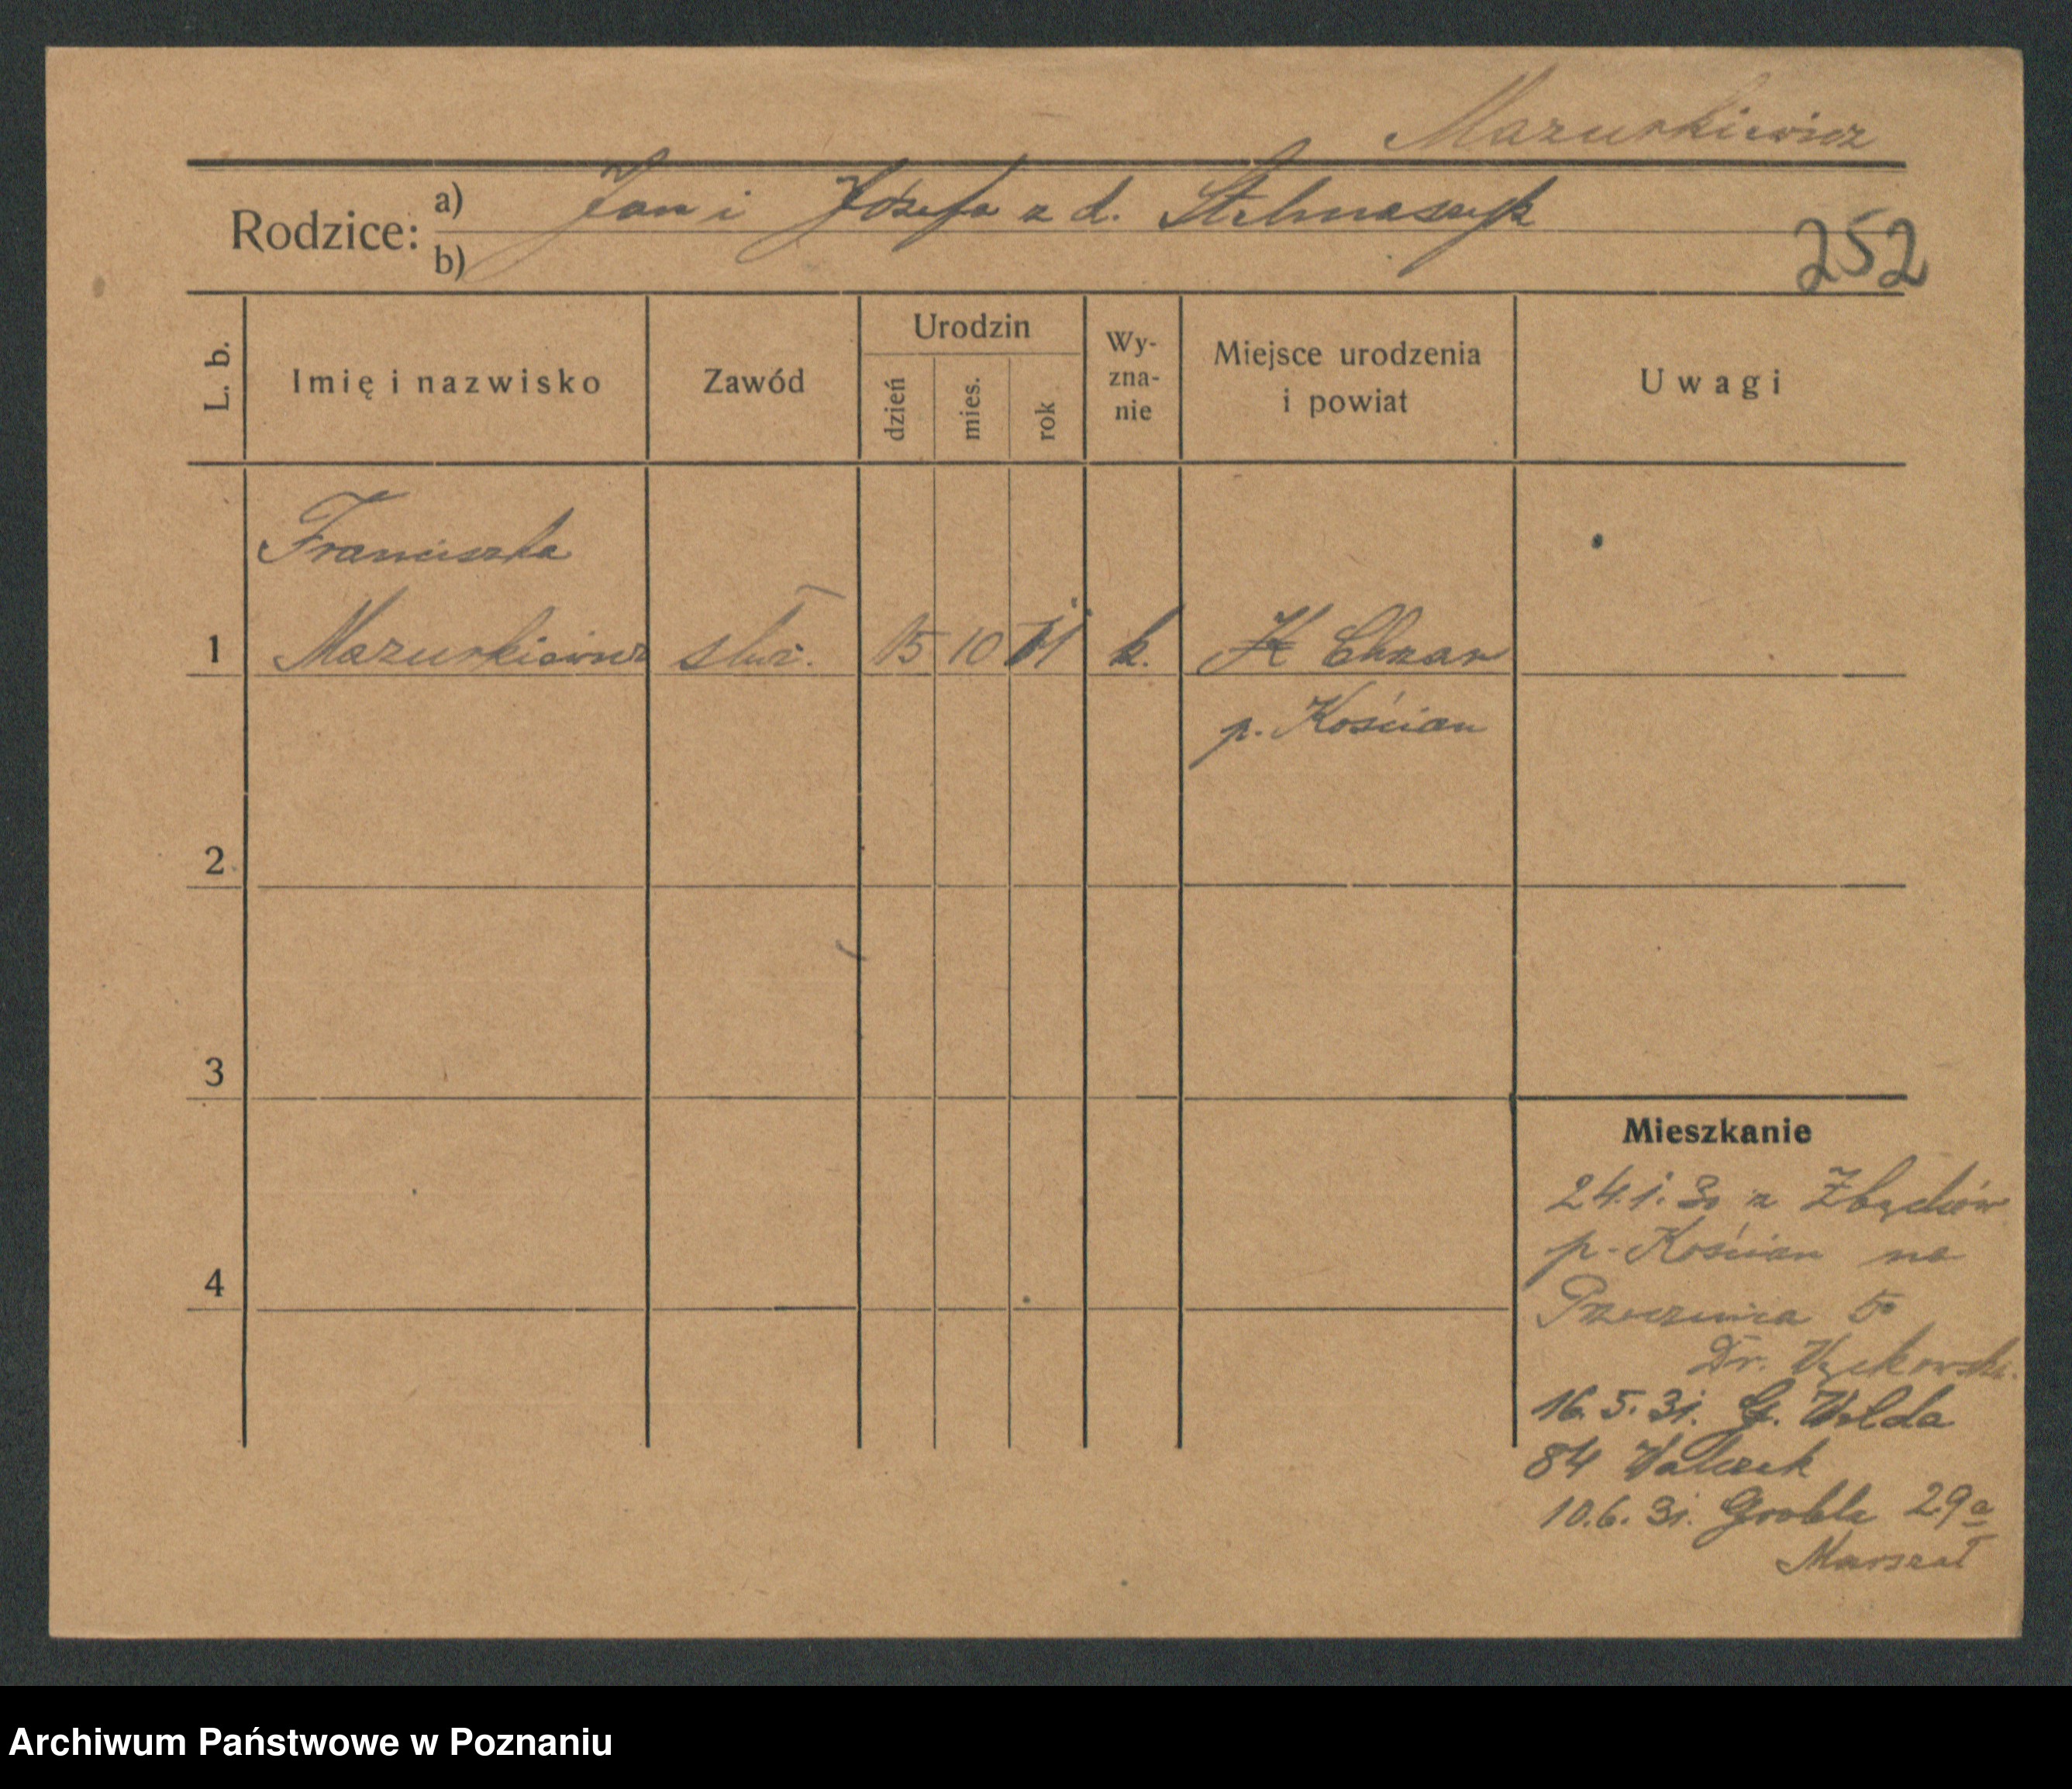 Mazurkiewicz
Rodzice: a) Jan i Józefa z d. Stelmaszyk
b)
252
L. b.
Imię i nazwisko
Zawód
Urodzin
dzień
mies.
rok
Wy-
zna-
nie
Miejsce urodzenia
i powiat
Uwagi
Franciszka
1 Mazurkiewicz służ. 15 10 11 k. Chzan
p. Kościan
2
3
4
Mieszkanie
24.1.30 z
p. Kościan na
5
Dr.
16.5.31. G. Wilda
84 Walczak
10.6.31. Grobla 29a
Marszał
Archiwum Państwowe w Poznaniu